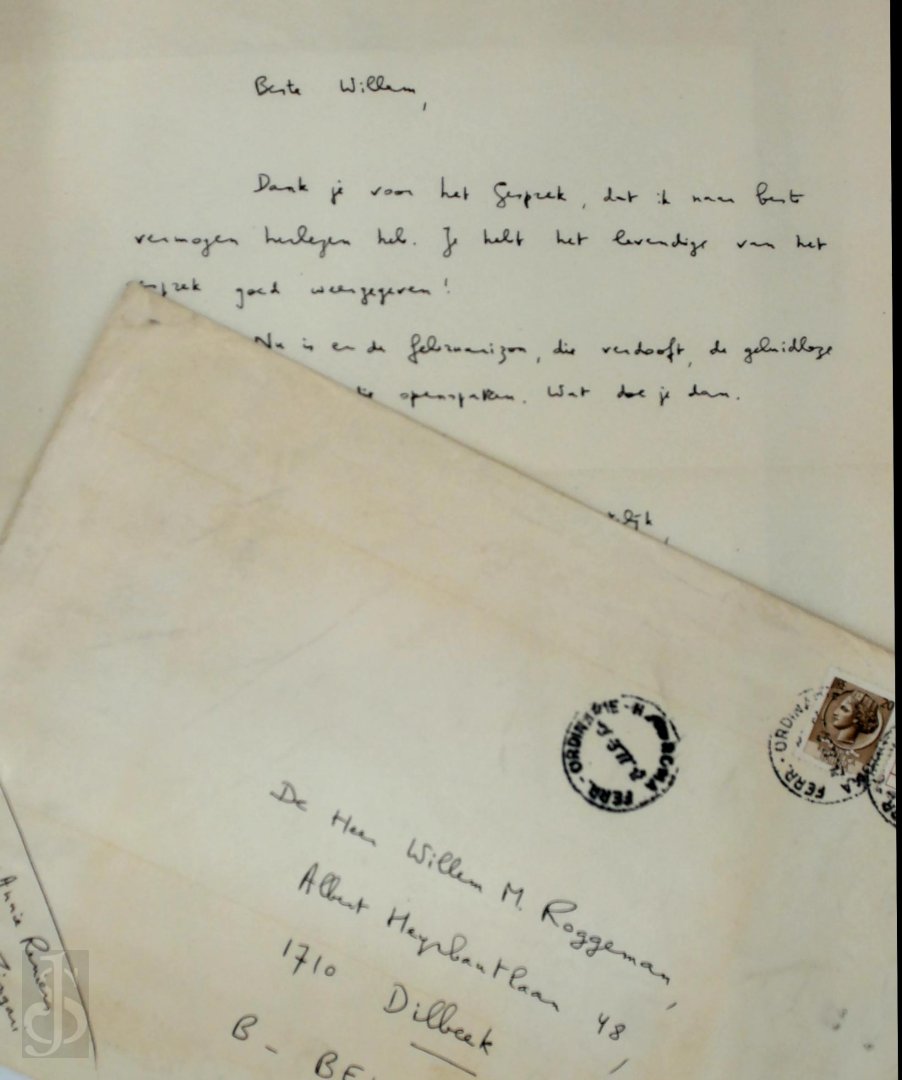 Beste Willem,
Dank je voor het Gesprek, dat ik naar beste
vermogen herlezen heb. Je hebt het levendige van het
goed weergegeven!
Nu is er de die verdooft, de geluidloze
die openspatten. Wat doe je dan.
FERR. ORDINARIE ROMA
FERR. ORDINA
De Heer Willem M. Roggeman,
Albert Heyrbautlaan 48,
1710 Dilbeek
B - BE
Annie Reniers